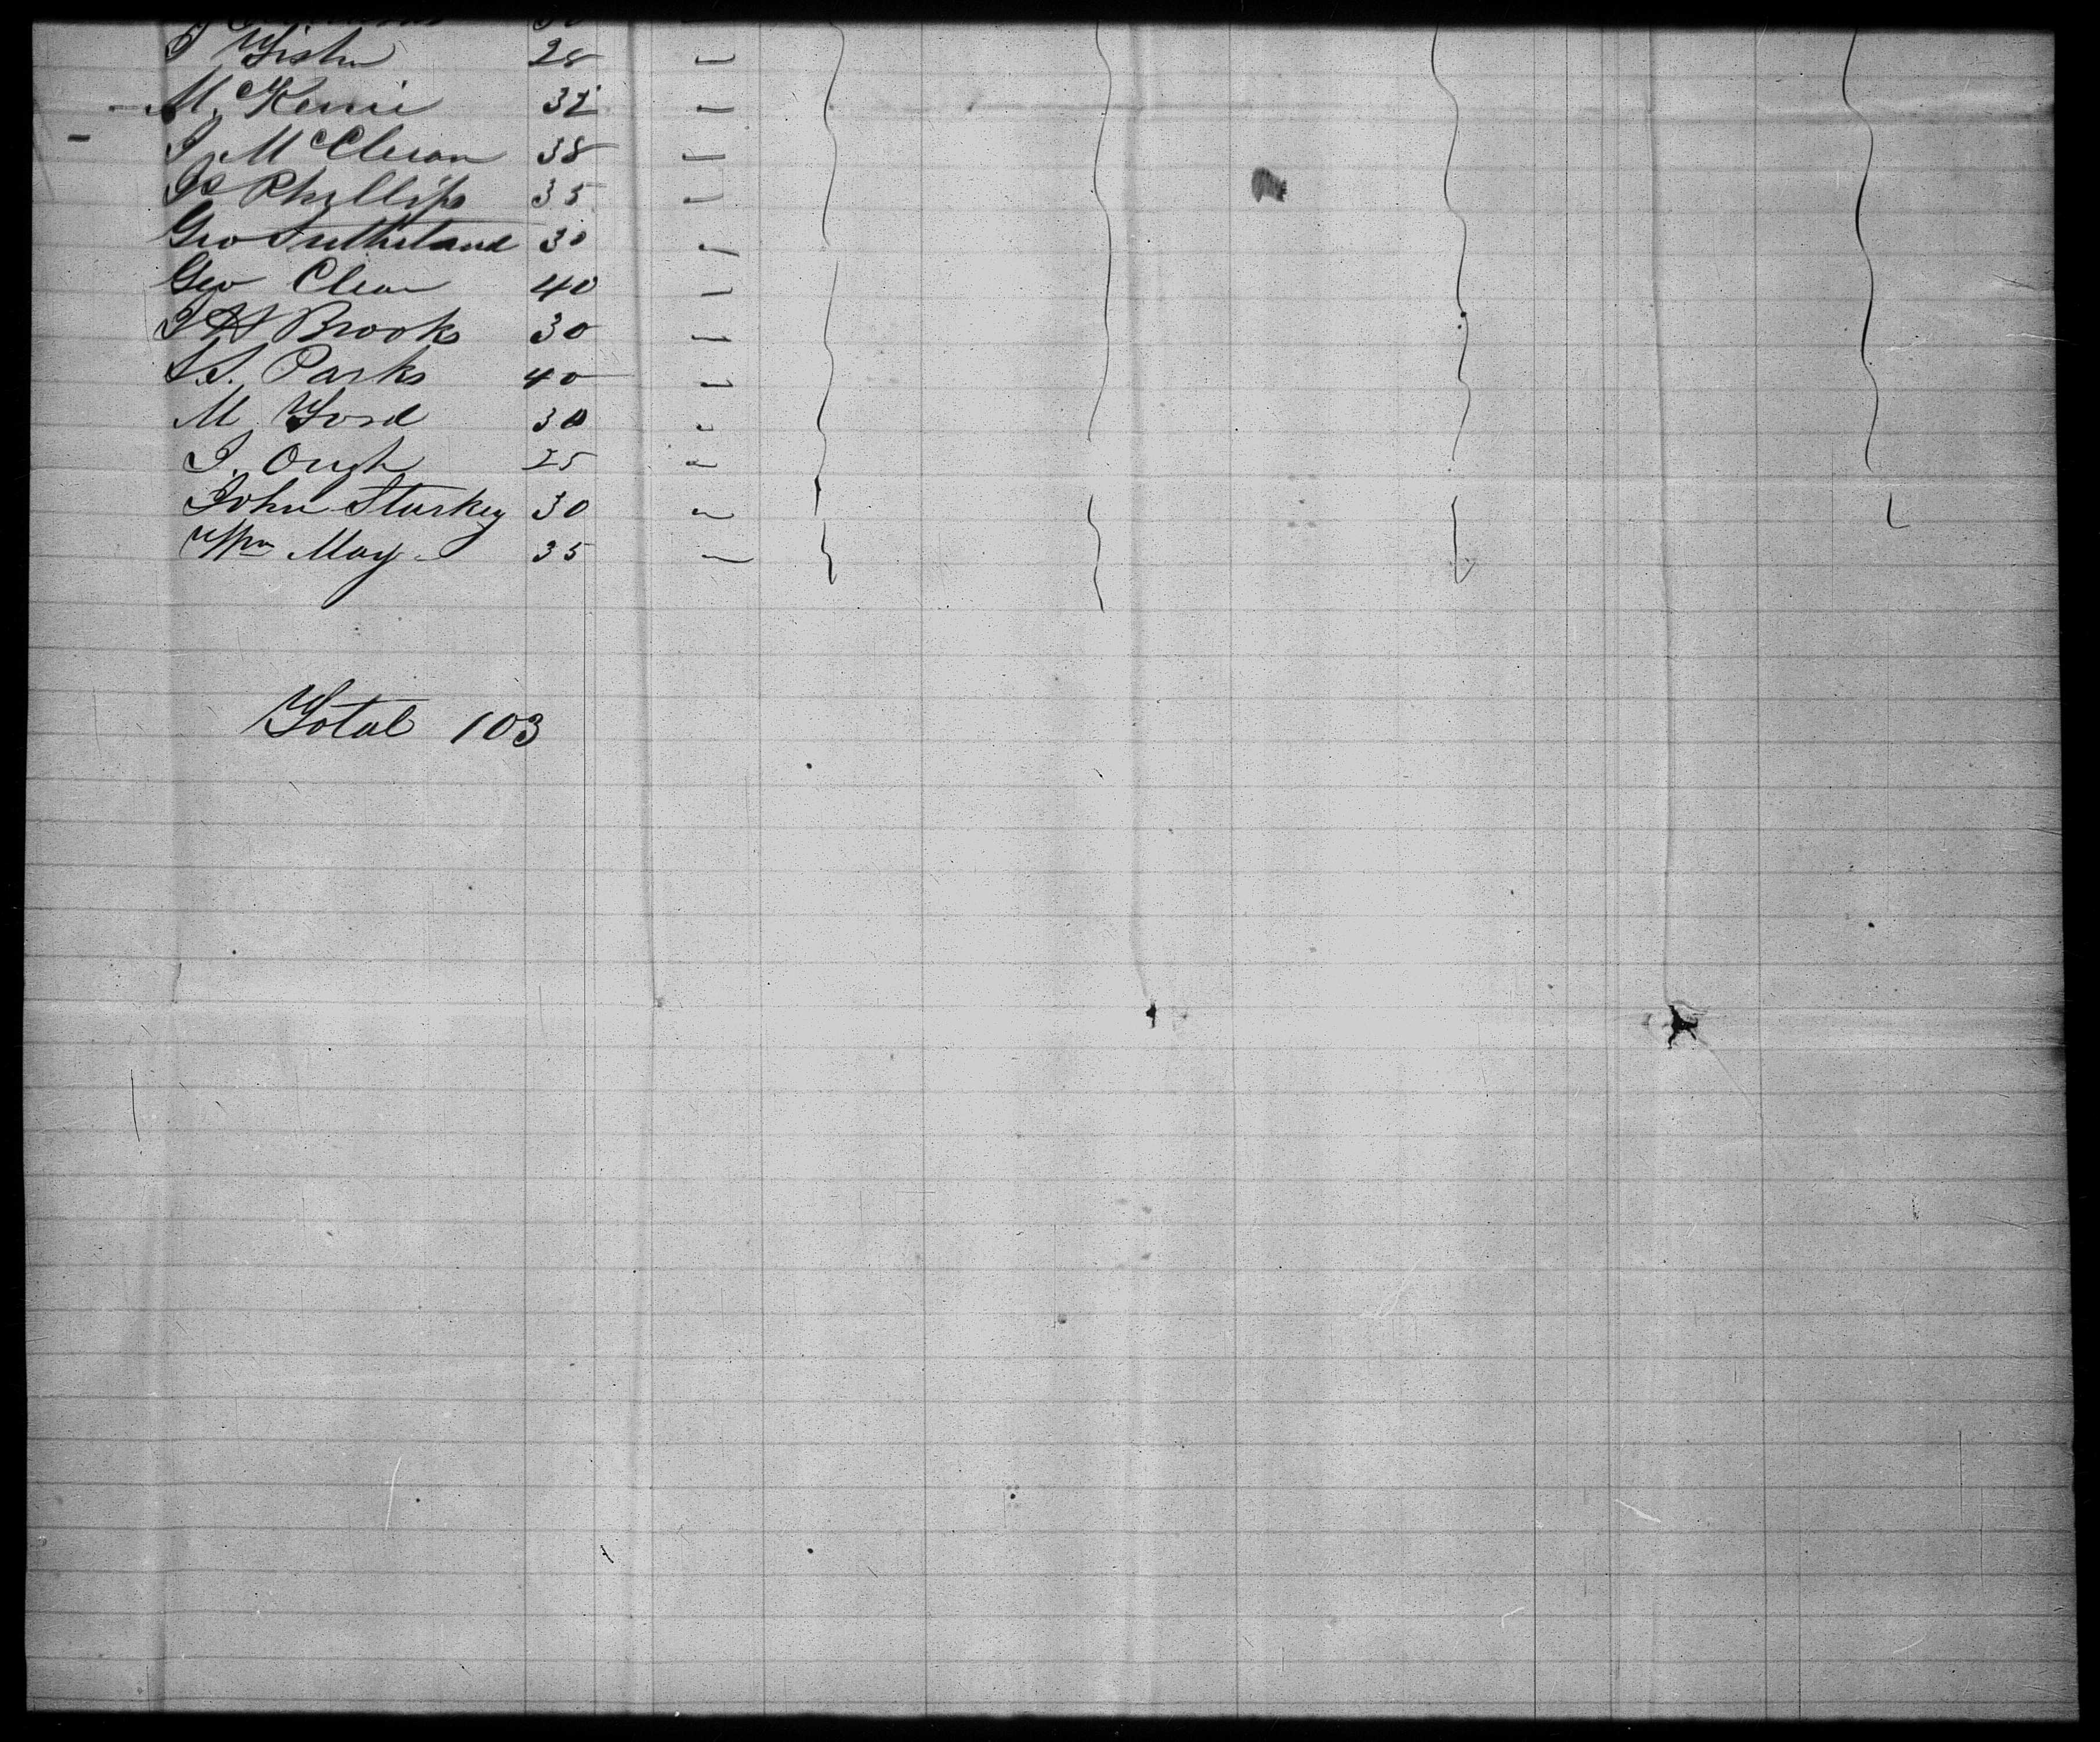 J Fisher 28
M. Kenie 32
J McClean 38
Jo Phyllips 35
Geo Sutherland 30
Geo Clear 40
J H Brooks 30
S.S. Parks 40
M. Ford 30
J. Ough 25
John Sturkey 30
Wm May 35
Total 103